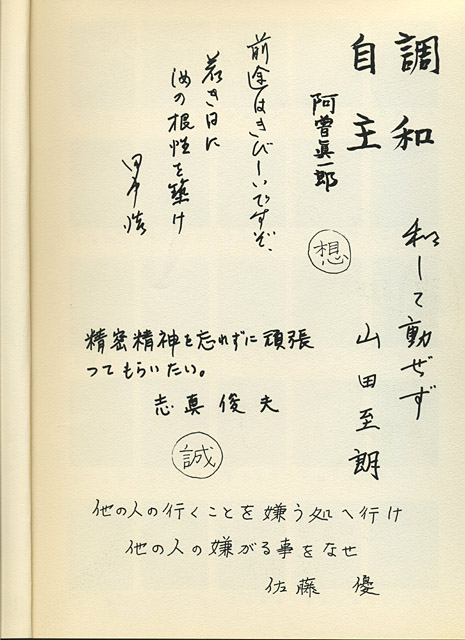 調和
自主
阿曽眞一郎
前途はきびしいですぞ、
若き日に
汝の根性を築け
想
和して動ぜず
山田至朗
精密精神を忘れずに頑張
つてもらいたい。
志真俊夫
誠
他の人の行くことを嫌う処へ行け
他の人の嫌がる事をなせ
佐藤 優